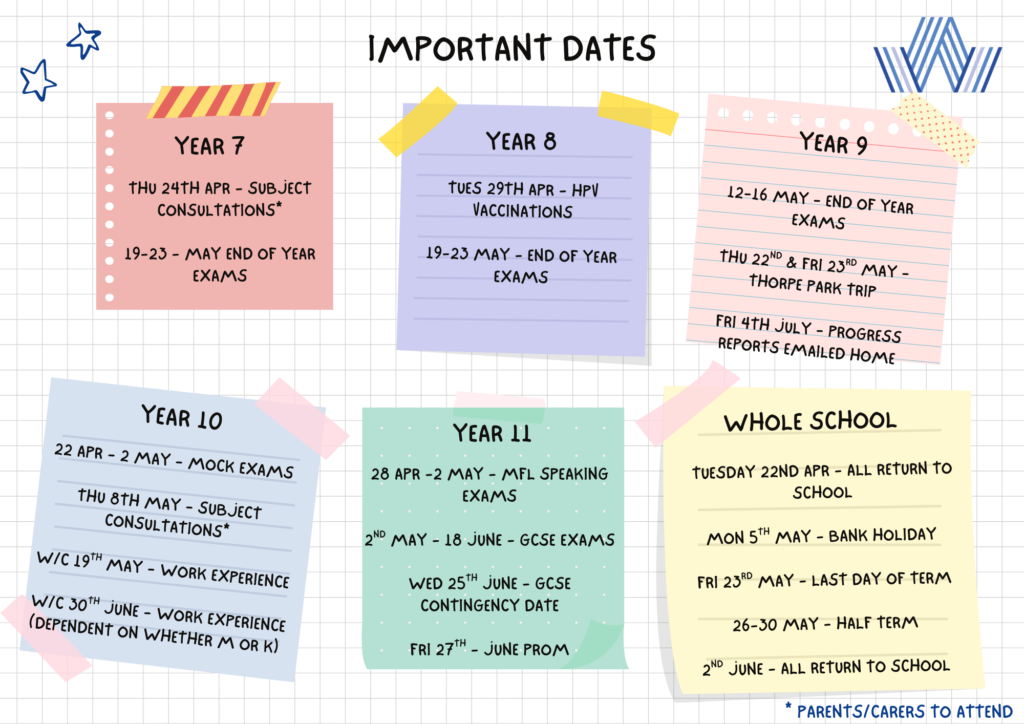 IMPORTANT DATES
YEAR 7
THU 24TH APR - SUBJECT
CONSULTATIONS*
19-23 - MAY END OF YEAR
EXAMS
YEAR 8
TUES 29TH APR - HPV
VACCINATIONS
19-23 MAY - END OF YEAR
EXAMS
YEAR 9
12-16 MAY - END OF YEAR
EXAMS
THU 22ND & FRI 23RD MAY -
THORPE PARK TRIP
FRI 4TH JULY - PROGRESS
REPORTS EMAILED HOME
YEAR 10
22 APR - 2 MAY - MOCK EXAMS
THU 8TH MAY - SUBJECT
CONSULTATIONS*
W/C 19TH MAY - WORK EXPERIENCE
W/C 30TH JUNE - WORK EXPERIENCE
(DEPENDENT ON WHETHER M OR K)
YEAR 11
28 APR -2 MAY - MFL SPEAKING
EXAMS
2ND MAY - 18 JUNE - GCSE EXAMS
WED 25TH JUNE - GCSE
CONTINGENCY DATE
FRI 27TH - JUNE PROM
WHOLE SCHOOL
TUESDAY 22ND APR - ALL RETURN TO
SCHOOL
MON 5TH MAY - BANK HOLIDAY
FRI 23RD MAY - LAST DAY OF TERM
26-30 MAY - HALF TERM
2ND JUNE - ALL RETURN TO SCHOOL
* PARENTS/CARERS TO ATTEND